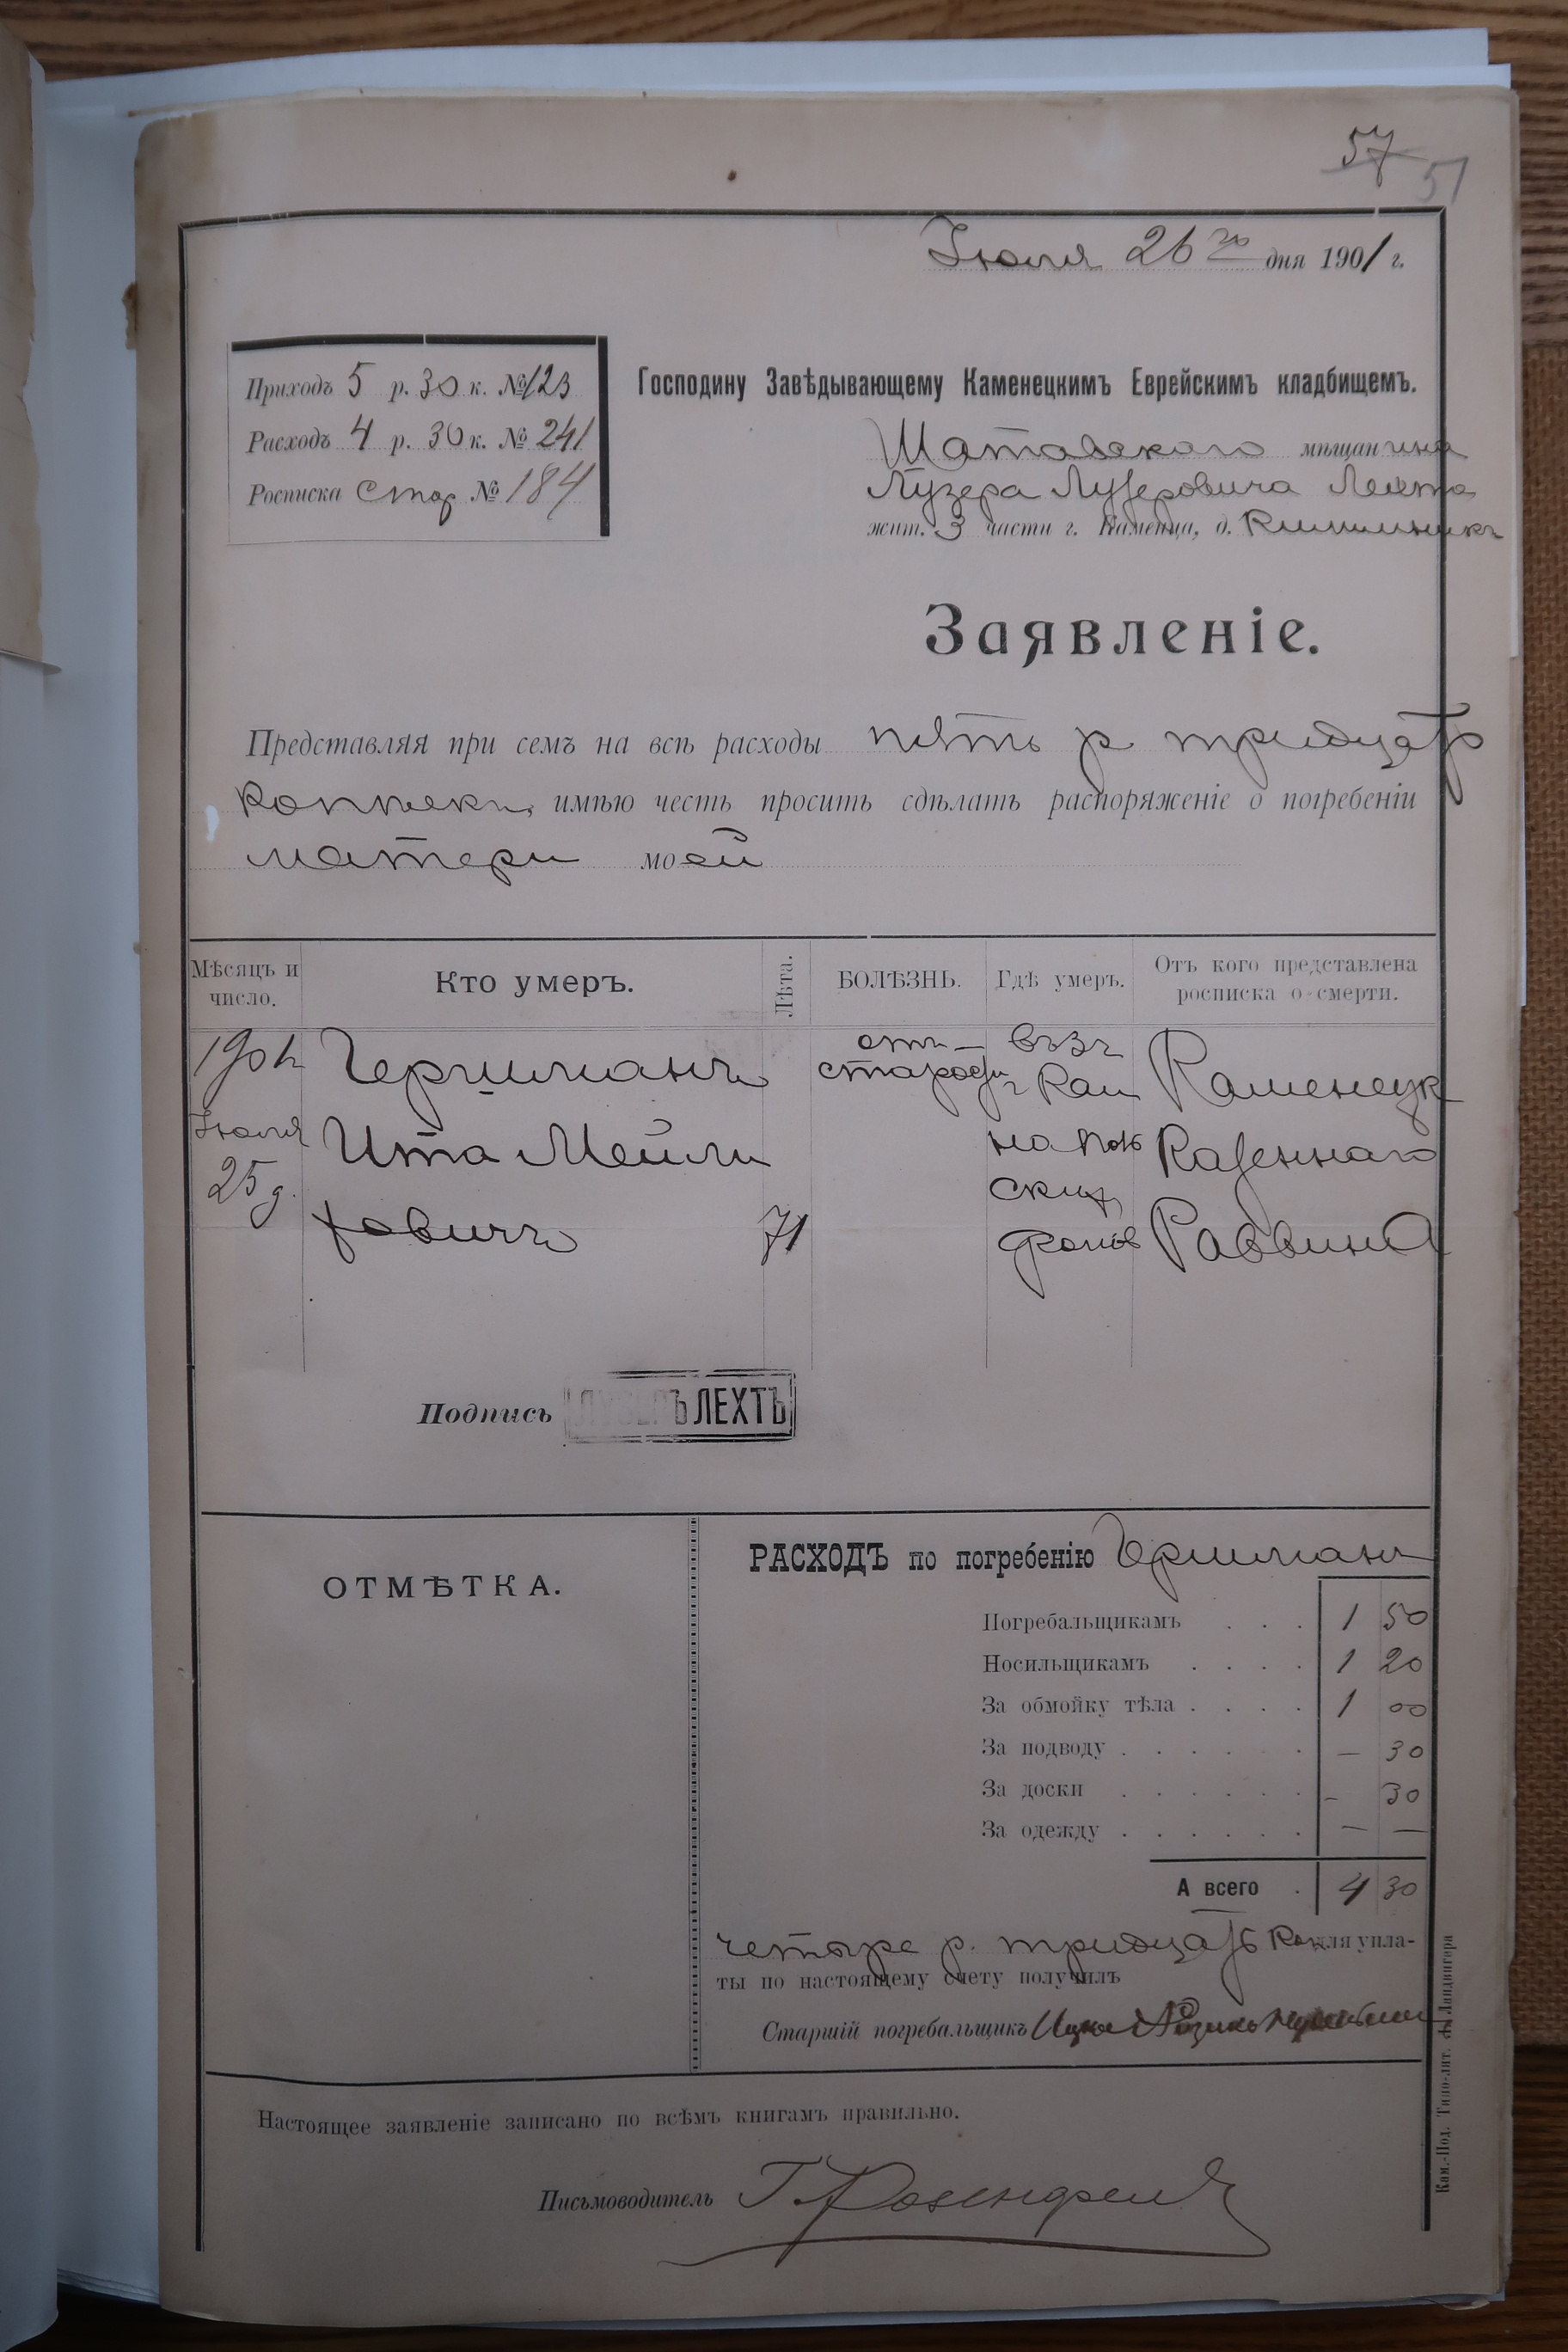 57
51
Іюля 26 го дня 1901 г.
Приходъ 5 р. 30 к. № 123
Расходъ 4 р. 30 к. № 241
Росписка стор № 184
Господину Завѣдывающему Каменецкимъ Еврейскимъ кладбищемъ.
Шатавского мѣщанина
Лузера Лузеровича Лехта
жит. 3 части г. Каменца, д.
Заявленіе.
Представляя при семъ на всѣ расходы пять р тридцать
копѣекъ, имѣю честь просить сдѣлать распоряженіе о погребеніи
матери моей
Мѣсяцъ и число.
Кто умеръ.
Лѣта.
БОЛѢЗНЬ.
Гдѣ умеръ.
Отъ кого представлена росписка о смерти.
1901
Іюля
25 д.
Гершманъ
Ита Мейли
ховичъ
71
отъ
старости
въ 3 ч
г Кам
на
ской
Каменецк
Казеннаго
Раввина
Подпись ЛУЗЕРЪ ЛЕХТЪ
ОТМѢТКА.
РАСХОДЪ по погребенію Гершманъ
Погребальщикамъ . . . 1 50
Носильщикамъ . . . . 1 20
За обмойку тѣла . . . . 1 00
За подводу . . . . . . — 30
За доски . . . . . . - 30
За одежду . . . . . . — —
А всего . 4 30
четыре р. тридцать коп для упла-
ты по настоящему счету получилъ
Старшій погребальщикъ
Настоящее заявленіе записано по всѣмъ книгамъ правильно.
Письмоводитель Г. Розенфельд
Кам.-Под. Типо-лит. Ландвигера